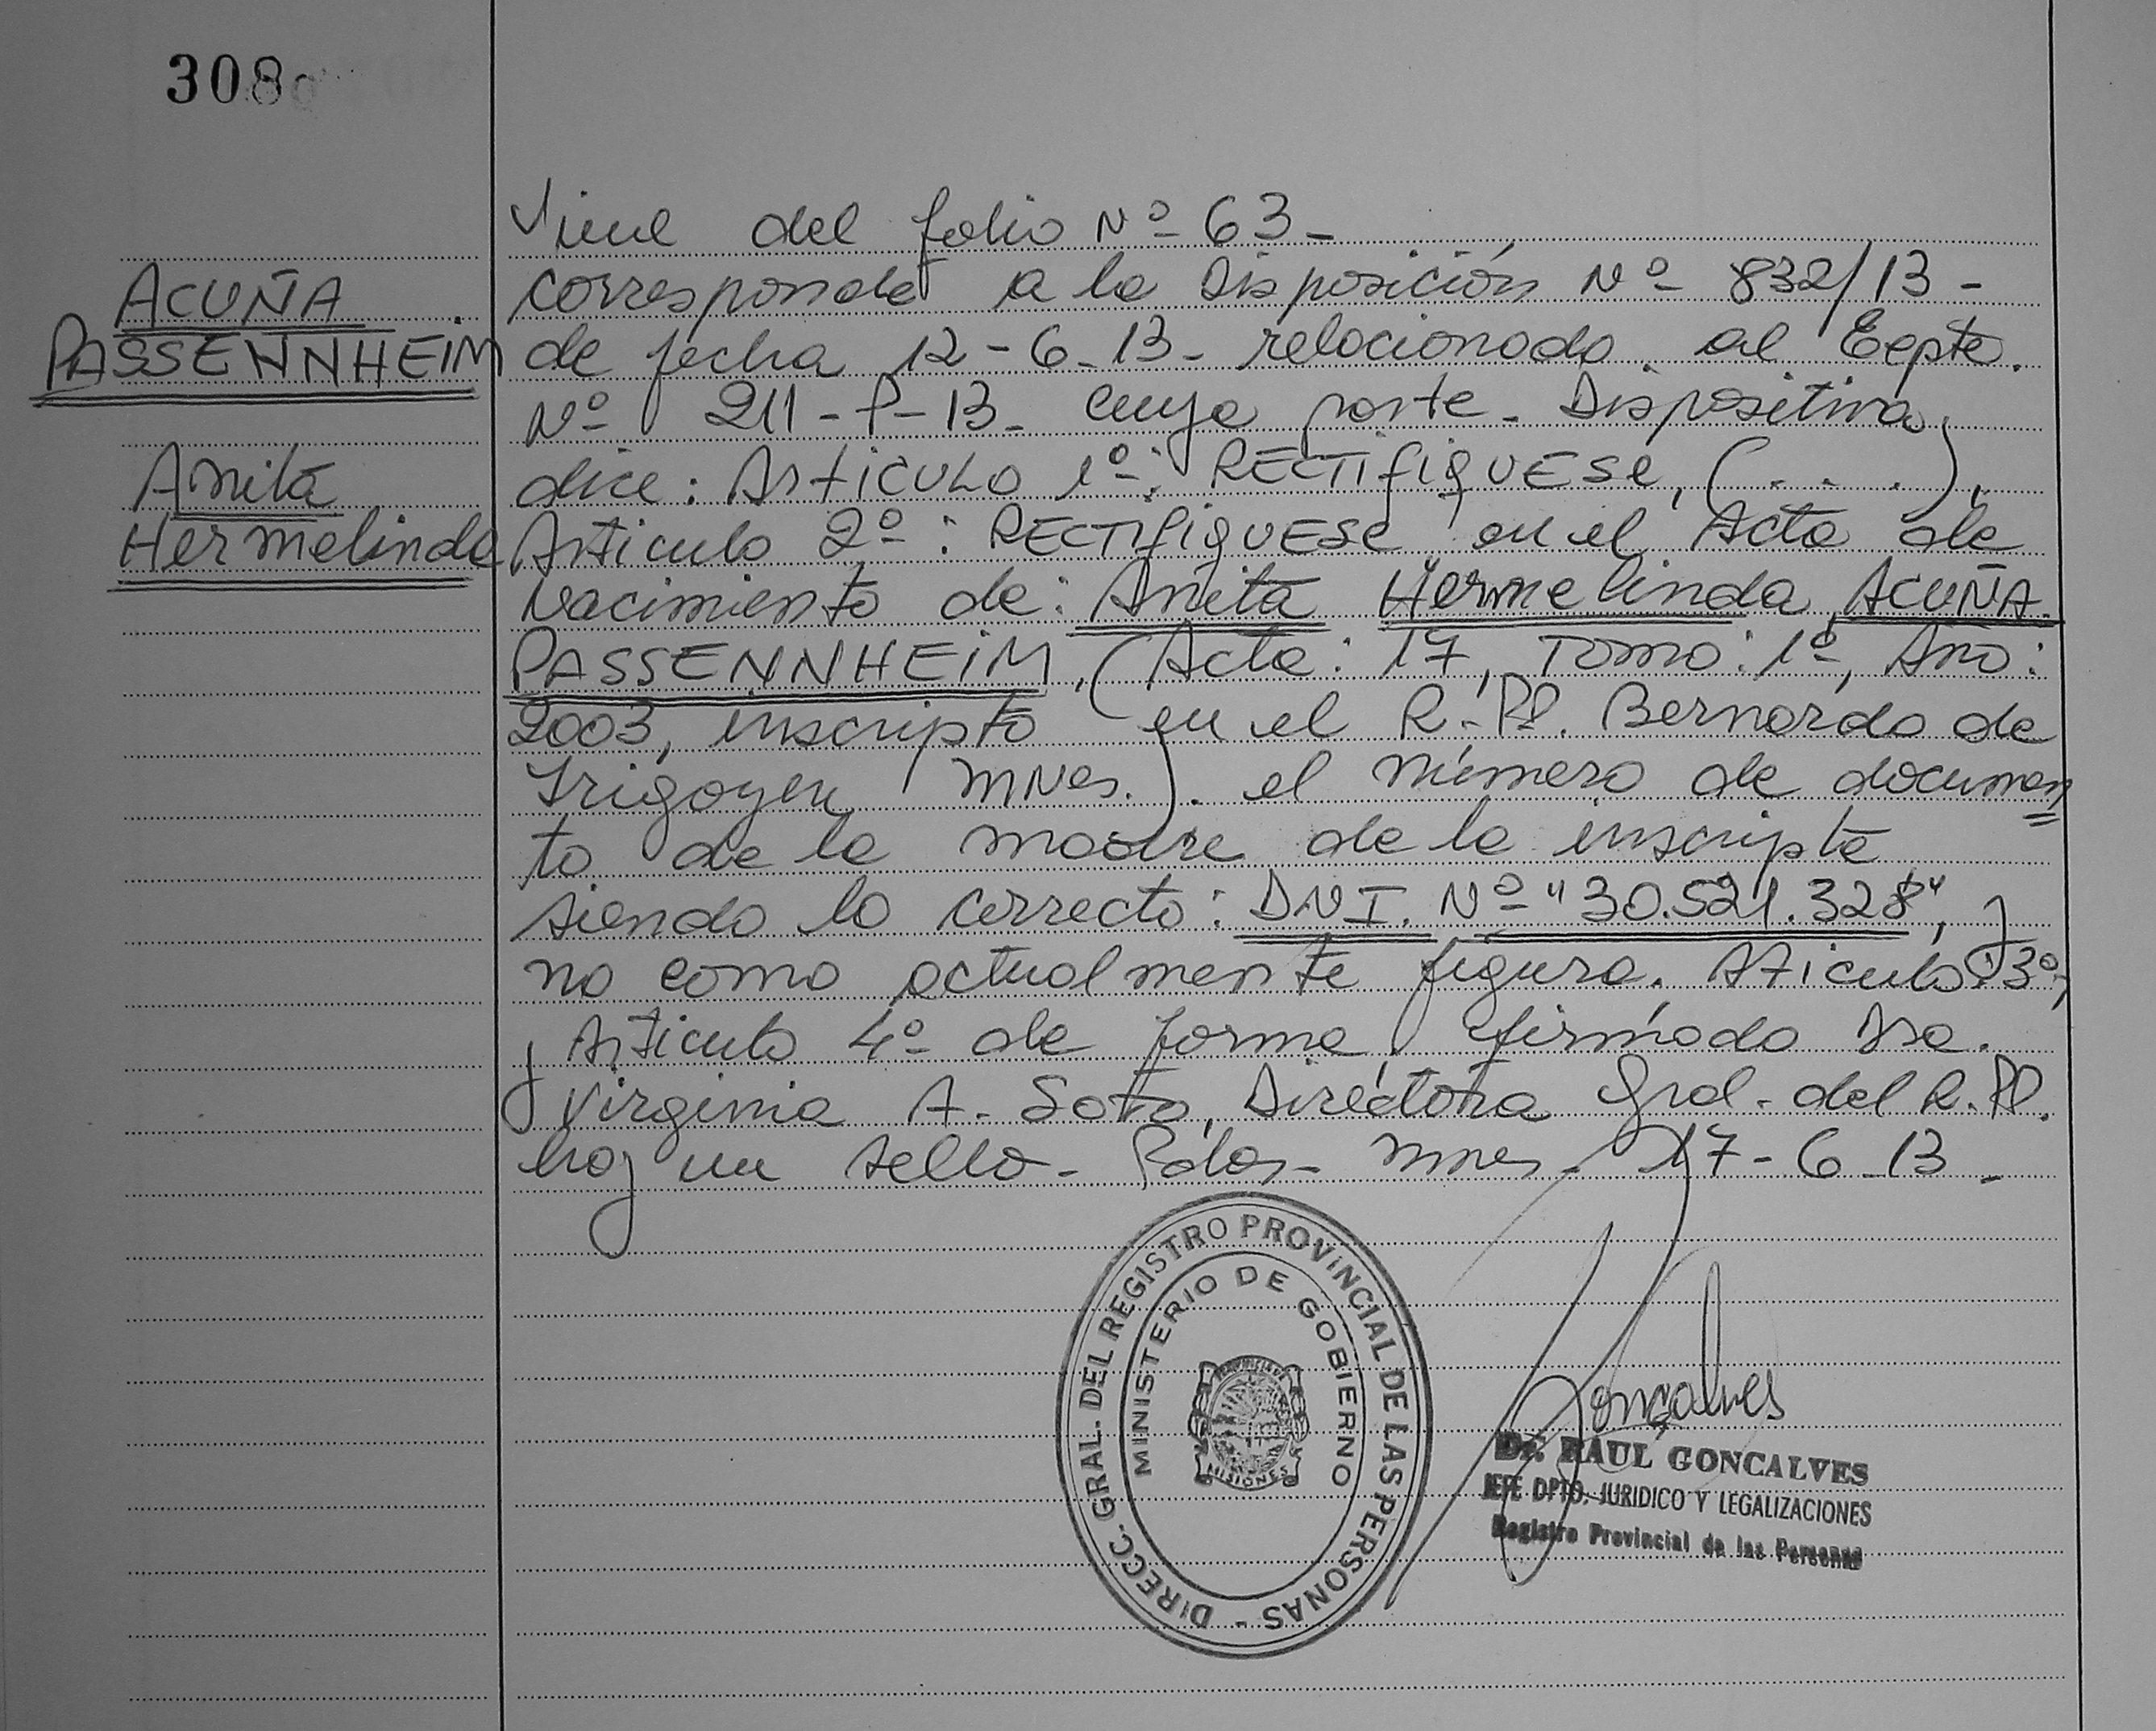 308
ACUÑA
PASSENNHEIM
Anita
Hermelinda
Viene del folio Nº 63-
corresponde a la Disposición Nº 832/13-
de fecha 12-6-13- relacionado al Expte.
Nº 211-P-13- cuya parte Dispositiva,
dice: ARTICULO 1º: RECTIFIQUESE, (...).
Articulo 2º: RECTIFIQUESE en el Acta de
Nacimiento de: Anita Hermelinda ACUÑA
PASSENNHEIM, (Acta: 17, Tomo: 1º, Año:
2003, inscripto en el R.PP. Bernardo de
Irigoyen Mnes.). el número de documen
to de la madre de la inscripta
siendo lo correcto: DNI. Nº "30.521.328", y
no como actualmente figura. Aticulo: 3º,
y Articulo 4º de forma, firmado Dra.
Virginia A. Soto, Directora Gral. del R.PP.
hay un sello- Pdas- mnes- 17-6-13-
DIRECC. GRAL. DEL REGISTRO PROVINCIAL DE LAS PERSONAS -
MINISTERIO DE GOBIERNO
MISIONES
Goncalves
Dr. RAUL GONCALVES
JEFE DPTO. JURIDICO Y LEGALIZACIONES
Registro Provincial de las Personas